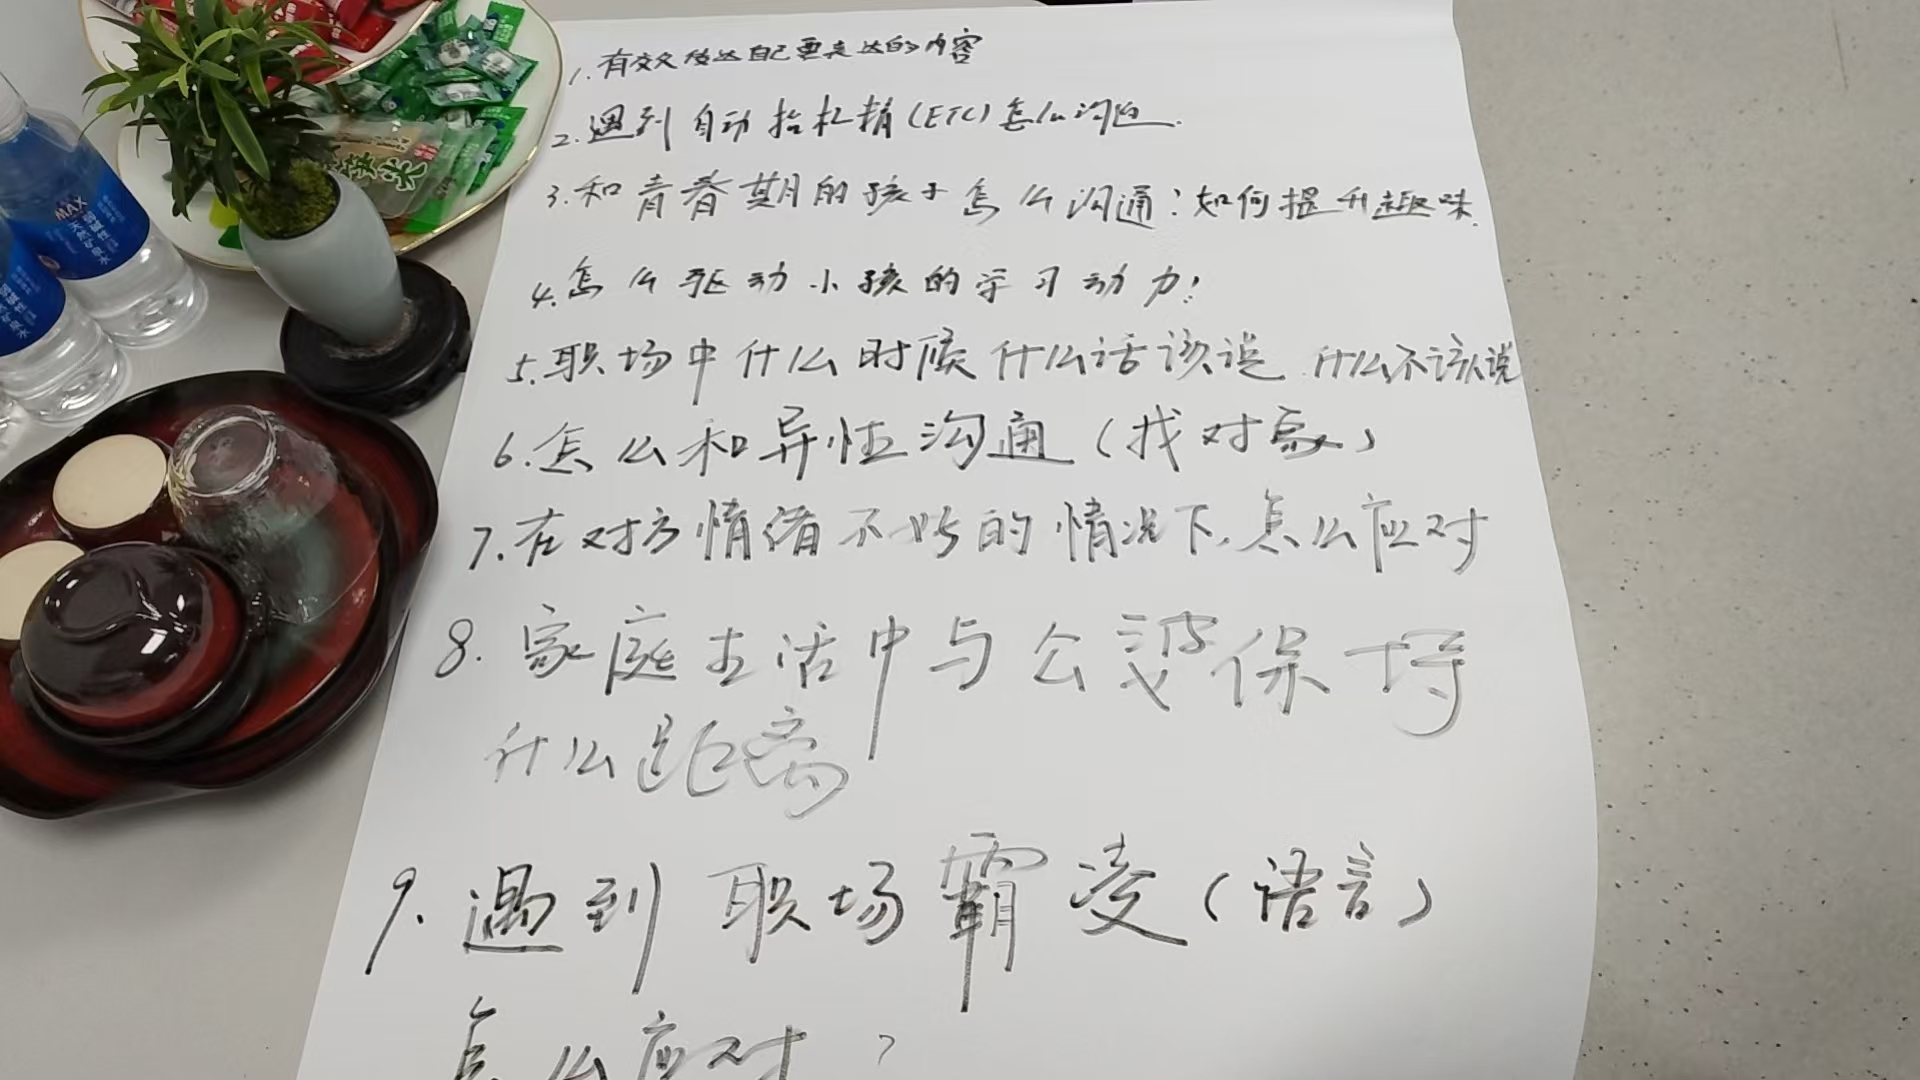 1.有效传达自己要表达的内容
2.遇到自动抬杠精(ETC)怎么沟通.
3.和青春期的孩子怎么沟通:如何提升趣味.
4.怎么驱动小孩的学习动力!
5.职场中什么时候什么话该说 什么不该说
6.怎么和异性沟通(找对象)
7.在对方情绪不好的情况下,怎么应对
8.家庭生活中与公婆保持
什么距离
9.遇到职场霸凌(语言)
怎么应对?
MAX